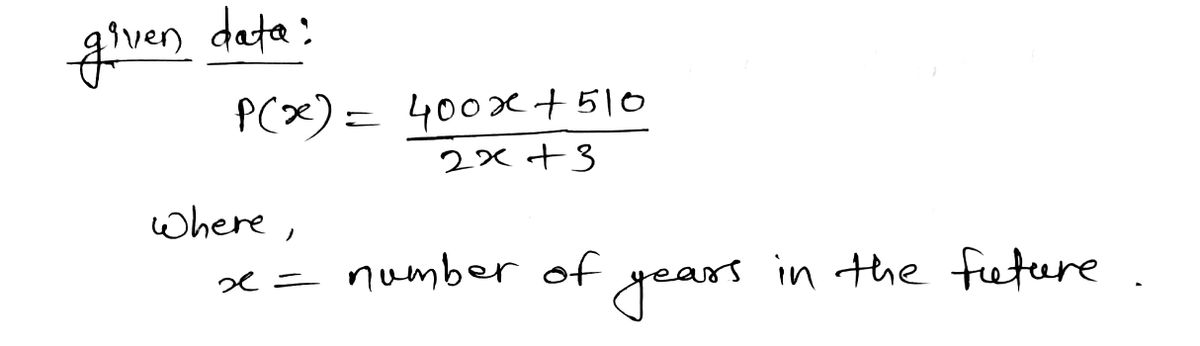 given data:
P(x) = 400x + 510
2x + 3
where,
x = number of years in the future.